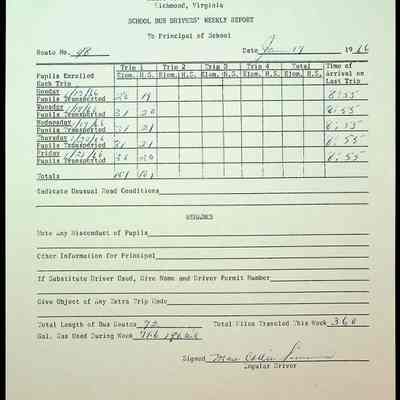 Richmond, Virginia
SCHOOL BUS DRIVERS' WEEKLY REPORT
To Principal of School
Route No. 98 Date Jan 17 1966
Trip 1 Trip 2 Trip 3 Trip 4 Total Time of
Pupils Enrolled Elem. H.S. Elem. H.S. Elem. H.S. Elem. H.S. Elem. H.S. Arrival on
Each Trip Last Trip
Monday 1/17/66
Pupils Transported 19 8:55
Tuesday 1/18/66
Pupils Transported 31 20 8:55
Wednesday 1/19/66
Pupils Transported 31 21 8:55
Thursday 1/20/66
Pupils Transported 31 21 8:55
Friday 1/21/66
Pupils Transported 20 8:55
Totals 101
Indicate Unusual Road Conditions
REMARKS
Note Any Misconduct of Pupils
Other Information for Principal
If Substitute Driver Used, Give Name and Driver Permit Number
Give Object of Any Extra Trip Made
Total Length of Bus Routes 72 Total Miles Traveled This Week 360
Gal. Gas Used During Week
Signed
Regular Driver